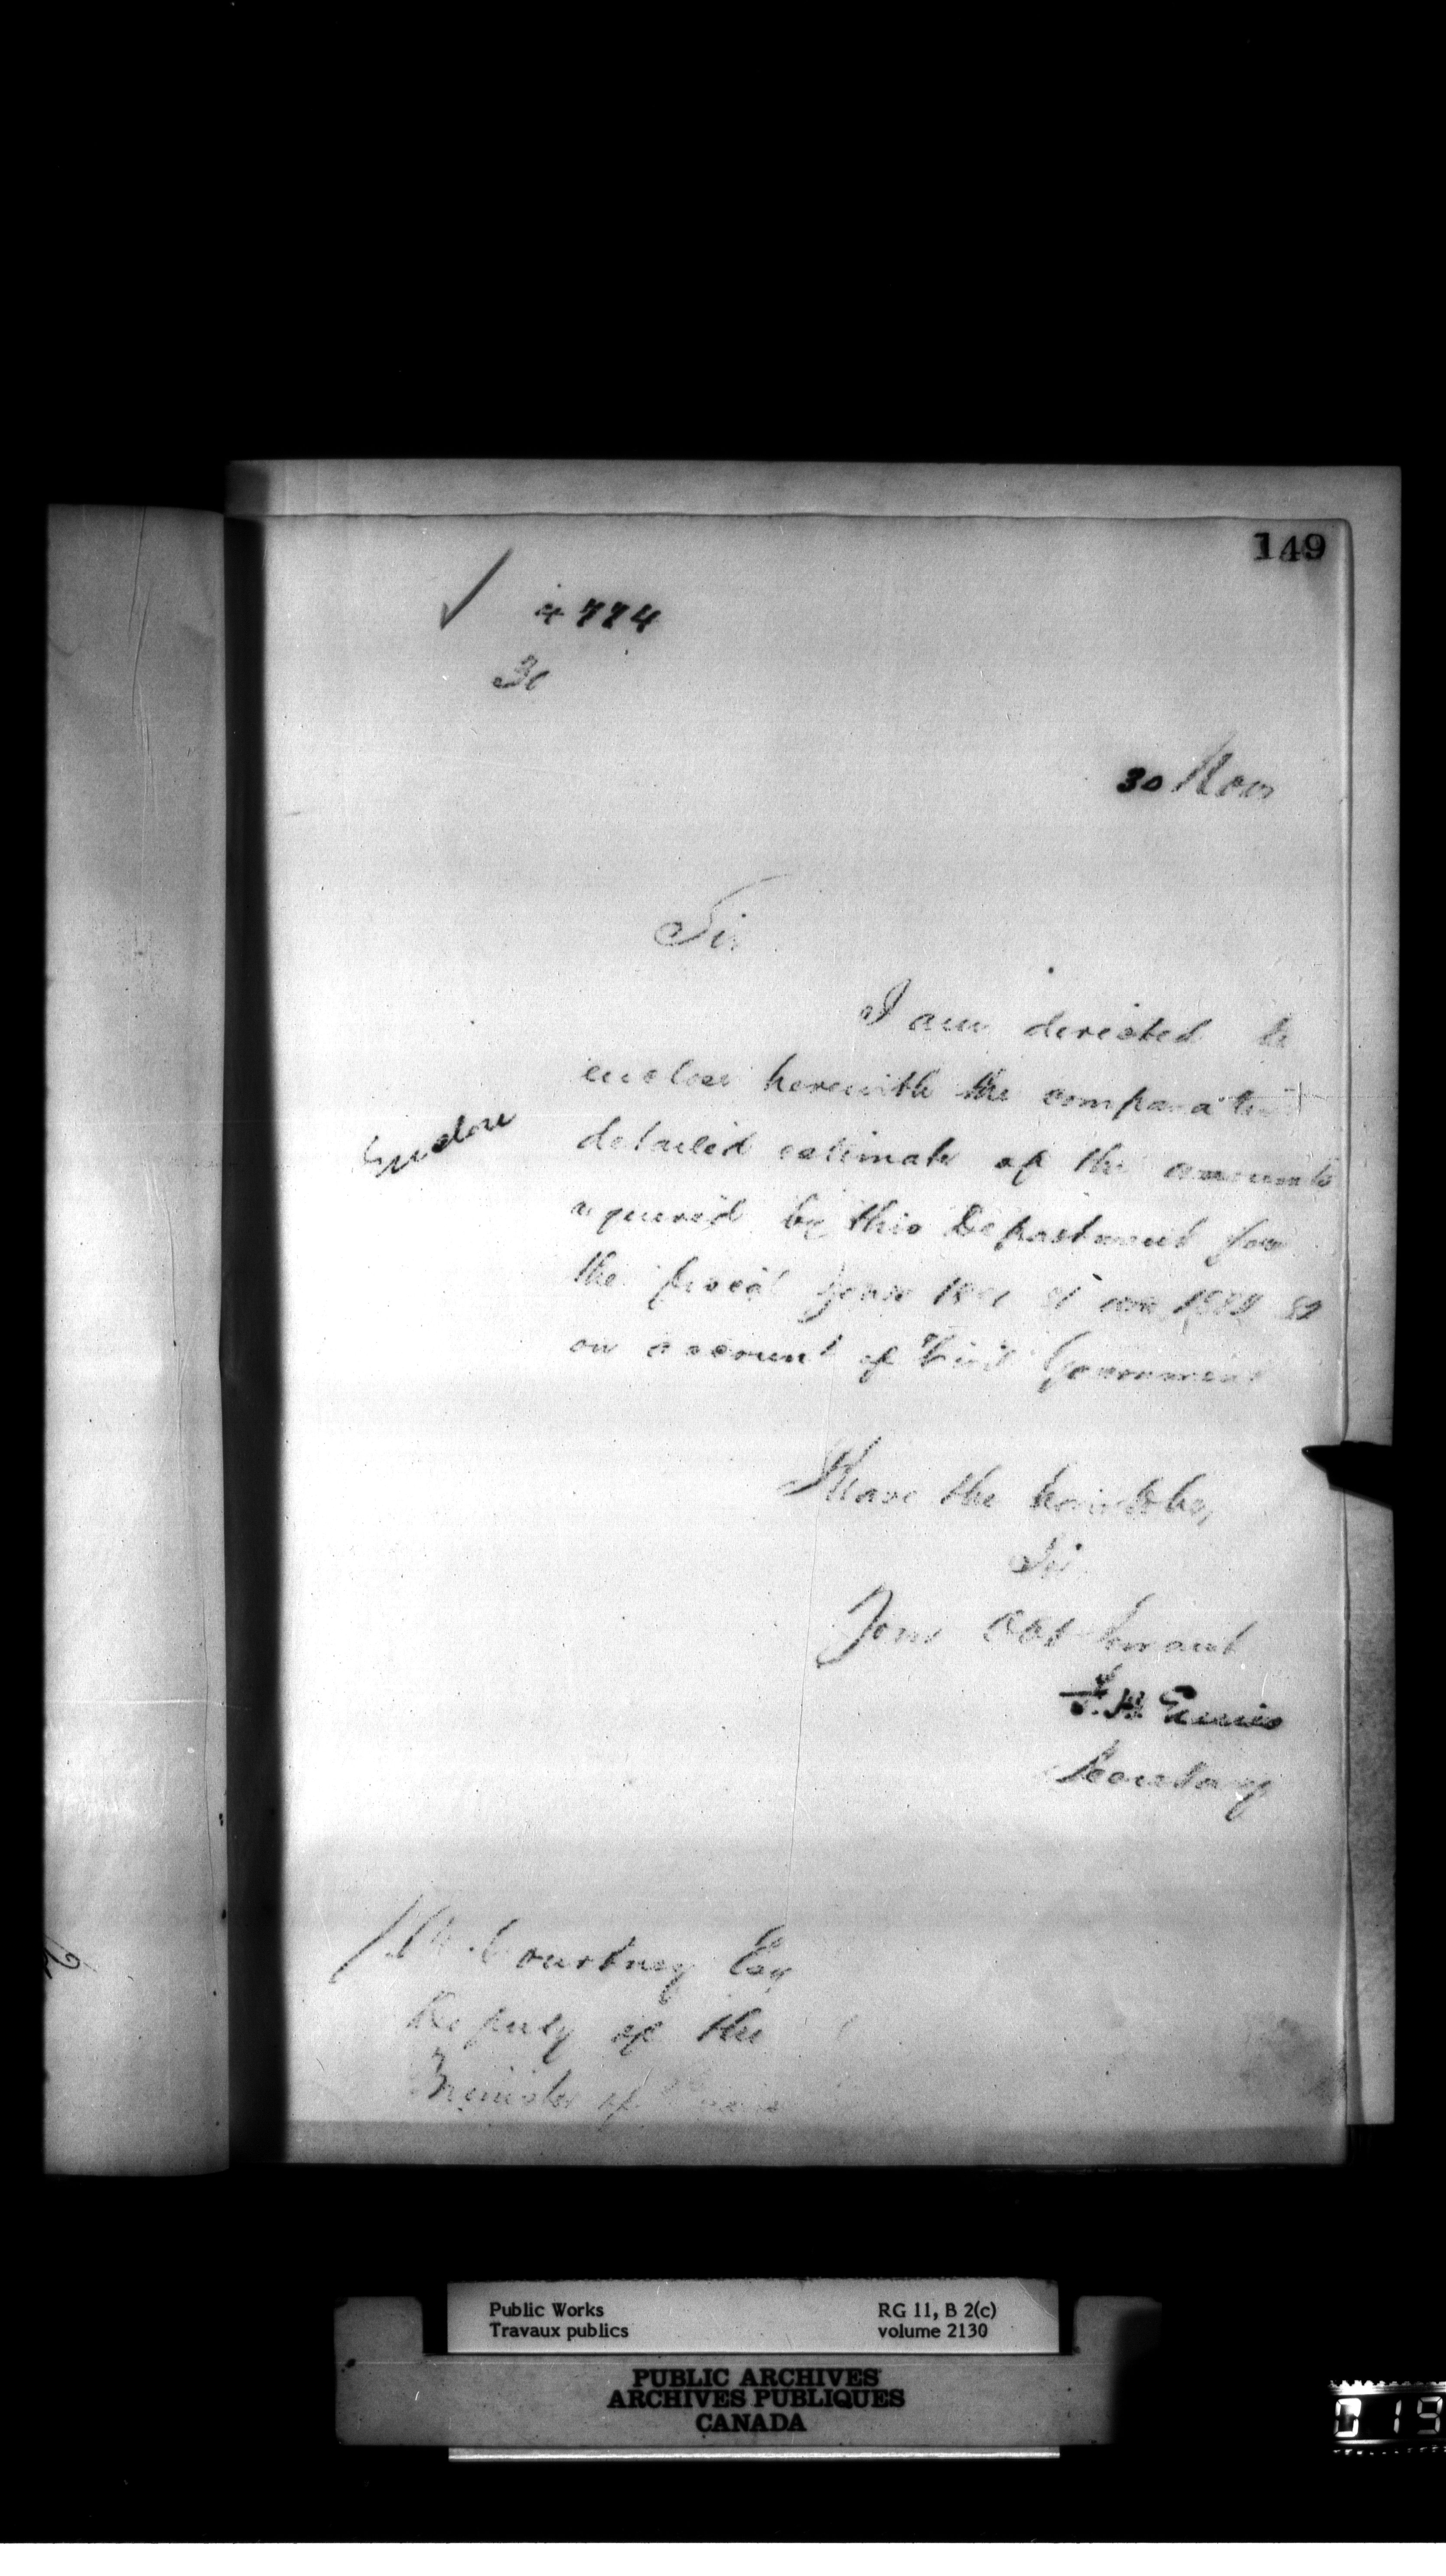 149
4774
30
30 Nov
Sir
I am directed to
enclose herewith the comparative
Enclose
detailed estimate of the amounts
required by this Department for
the fiscal years
on account of Civil Government
I have the honor to be,
Sir
Your Obt Servant
F. H. Ennis
Secretary
J. M. Courtney Esq
Deputy of the
Minister of Finance
Public Works
Travaux publics
RG 11, B 2(c)
volume 2130
PUBLIC ARCHIVES
ARCHIVES PUBLIQUES
CANADA
019